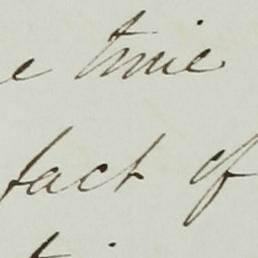 e time
fact of